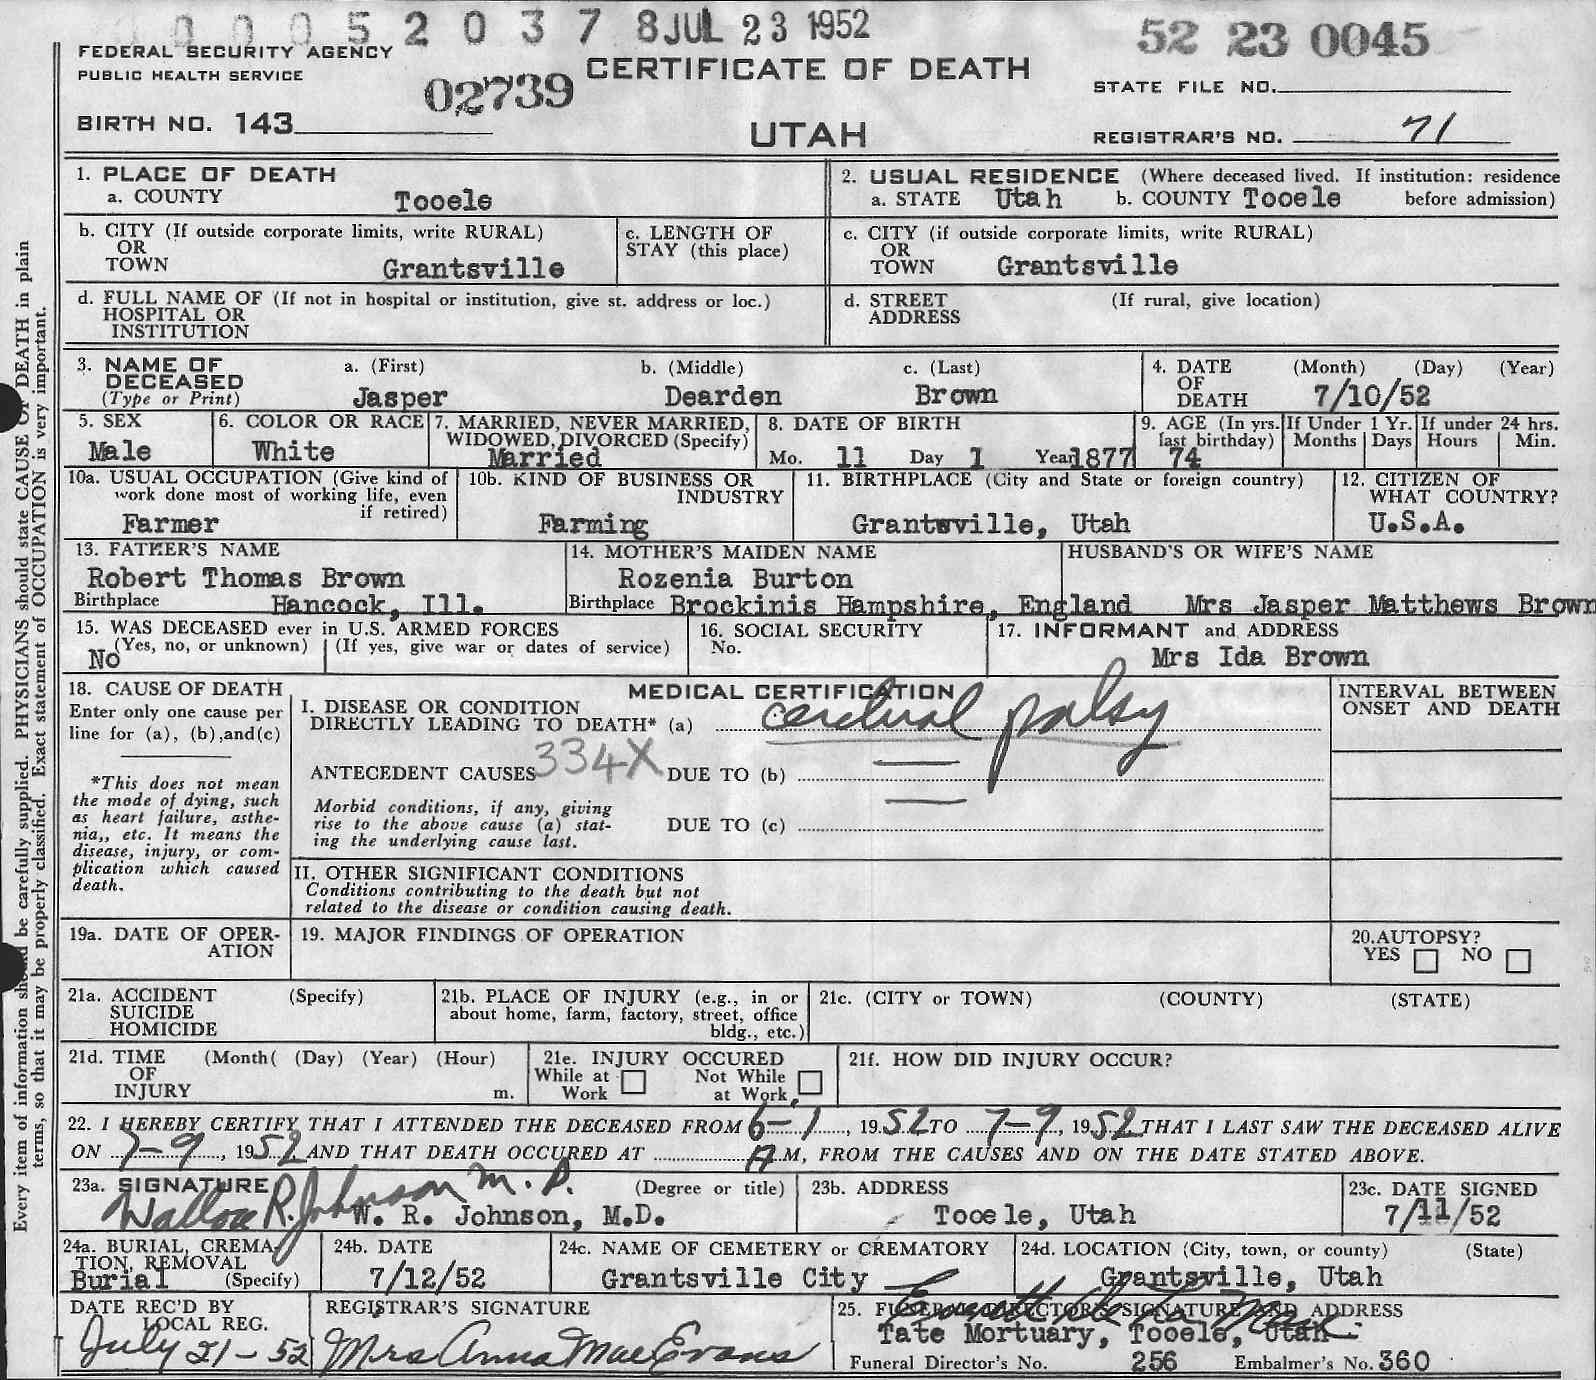 0 0 0 5 2 0 3 7 8 JUL 23 1952
52 23 0045
FEDERAL SECURITY AGENCY
PUBLIC HEALTH SERVICE
02739
CERTIFICATE OF DEATH
STATE FILE NO.
BIRTH NO. 143
UTAH
REGISTRAR'S NO. 71
1. PLACE OF DEATH
a. COUNTY Tooele
2. USUAL RESIDENCE (Where deceased lived. If institution: residence
a. STATE Utah b. COUNTY Tooele before admission)
b. CITY (If outside corporate limits, write RURAL)
OR
TOWN Grantsville
c. LENGTH OF
STAY (this place)
c. CITY (if outside corporate limits, write RURAL)
OR
TOWN Grantsville
d. FULL NAME OF (If not in hospital or institution, give st. address or loc.)
HOSPITAL OR
INSTITUTION
d. STREET (If rural, give location)
ADDRESS
3. NAME OF a. (First) b. (Middle) c. (Last)
DECEASED
(Type or Print) Jasper Dearden Brown
4. DATE (Month) (Day) (Year)
OF
DEATH 7/10/52
5. SEX
Male
6. COLOR OR RACE
White
7. MARRIED, NEVER MARRIED,
WIDOWED, DIVORCED (Specify)
Married
8. DATE OF BIRTH
Mo. 11 Day 1 Year 1877
9. AGE (In yrs.
last birthday)
74
If Under 1 Yr.
Months Days
If under 24 hrs.
Hours Min.
10a. USUAL OCCUPATION (Give kind of
work done most of working life, even
if retired)
Farmer
10b. KIND OF BUSINESS OR
INDUSTRY
Farming
11. BIRTHPLACE (City and State or foreign country)
Grantsville, Utah
12. CITIZEN OF
WHAT COUNTRY?
U.S.A.
13. FATHER'S NAME
Robert Thomas Brown
Birthplace Hancock, Ill.
14. MOTHER'S MAIDEN NAME
Rozenia Burton
Birthplace Brockinis Hampshire, England
HUSBAND'S OR WIFE'S NAME
Mrs Jasper Matthews Brown
15. WAS DECEASED ever in U.S. ARMED FORCES
(Yes, no, or unknown) (If yes, give war or dates of service)
No
16. SOCIAL SECURITY
No.
17. INFORMANT and ADDRESS
Mrs Ida Brown
18. CAUSE OF DEATH
Enter only one cause per
line for (a), (b), and (c)
*This does not mean
the mode of dying, such
as heart failure, asthe-
nia,, etc. It means the
disease, injury, or com-
plication which caused
death.
MEDICAL CERTIFICATION
I. DISEASE OR CONDITION
DIRECTLY LEADING TO DEATH* (a) cerebral palsy
ANTECEDENT CAUSES 334X DUE TO (b)
Morbid conditions, if any, giving
rise to the above cause (a) stat-
ing the underlying cause last.
DUE TO (c)
II. OTHER SIGNIFICANT CONDITIONS
Conditions contributing to the death but not
related to the disease or condition causing death.
INTERVAL BETWEEN
ONSET AND DEATH
19a. DATE OF OPER-
ATION
19. MAJOR FINDINGS OF OPERATION
20. AUTOPSY?
YES NO
21a. ACCIDENT (Specify)
SUICIDE
HOMICIDE
21b. PLACE OF INJURY (e.g., in or
about home, farm, factory, street, office
bldg., etc.)
21c. (CITY or TOWN) (COUNTY) (STATE)
21d. TIME (Month( (Day) (Year) (Hour)
OF
INJURY m.
21e. INJURY OCCURED
While at Not While
Work at Work
21f. HOW DID INJURY OCCUR?
22. I HEREBY CERTIFY THAT I ATTENDED THE DECEASED FROM 6-1, 1952 TO 7-9, 1952 THAT I LAST SAW THE DECEASED ALIVE
ON 7-9, 1952 AND THAT DEATH OCCURED AT A M, FROM THE CAUSES AND ON THE DATE STATED ABOVE.
23a. SIGNATURE (Degree or title)
R. Johnson M.D.
W. R. Johnson, M.D.
23b. ADDRESS
Tooele, Utah
23c. DATE SIGNED
7/11/52
24a. BURIAL, CREMA-
TION, REMOVAL
Burial (Specify)
24b. DATE
7/12/52
24c. NAME OF CEMETERY or CREMATORY
Grantsville City
24d. LOCATION (City, town, or county) (State)
Grantsville, Utah
DATE REC'D BY
LOCAL REG.
July 21-52
REGISTRAR'S SIGNATURE
Mrs Anna Mae Evans
25. FUNERAL DIRECTOR'S SIGNATURE AND ADDRESS
Tate Mortuary, Tooele, Utah
Funeral Director's No. 256 Embalmer's No. 360
Every item of information should be carefully supplied. PHYSICIANS should state CAUSE OF DEATH in plain
terms, so that it may be properly classified. Exact statement of OCCUPATION is very important.